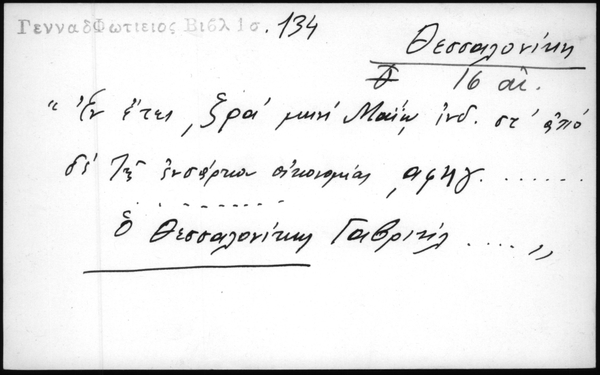 ΓενναδΦωτιειος Βιβλ 1σ.134
Θεσσαλονίκη
16 αἰ.
"Ἐν ἔτει ͵ξρα' μηνί Μαΐῳ ἰνδ. στ' ἀπό
δέ τῆς ἐνσάρκου οἰκονομίας ͵αφηγ.......
ὁ Θεσσαλονίκης Γαβριήλ ....,,